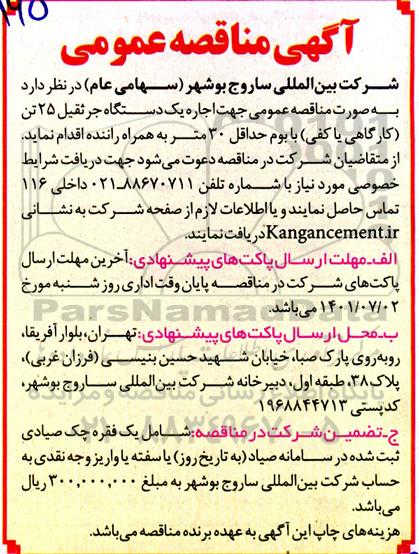 آگهی مناقصه عمومی
شرکت بین‌المللی ساروج بوشهر (سهامی عام) در نظر دارد
به صورت مناقصه عمومی جهت اجاره یک دستگاه جرثقیل ۲۵ تن
(کارگاهی یا کفی) با بوم حداقل ۳۰ متر به همراه راننده اقدام نماید.
از متقاضیان شرکت در مناقصه دعوت می‌شود جهت دریافت شرایط
خصوصی مورد نیاز با شماره تلفن ۸۸۶۷۰۷۱۱-۰۲۱ داخلی ۱۱۶
تماس حاصل نمایند و یا اطلاعات لازم از صفحه شرکت به نشانی
Kangancement.ir دریافت نمایند.
الف-مهلت ارسال پاکت‌های پیشنهادی: آخرین مهلت ارسال
پاکت‌های شرکت در مناقصه پایان وقت اداری روز شنبه مورخ
۱۴۰۱/۰۷/۰۲ می‌باشد.
ب-محل ارسال پاکت‌های پیشنهادی: تهران، بلوار آفریقا،
روبه‌روی پارک صبا، خیابان شهید حسین بنیسی (فرزان غربی)،
پلاک ۳۸، طبقه اول، دبیرخانه شرکت بین‌المللی ساروج بوشهر،
کدپستی ۱۹۶۸۸۴۴۷۱۳
ج-تضمین شرکت در مناقصه: شامل یک فقره چک صیادی
ثبت شده در سامانه صیاد (به تاریخ روز) یا سفته یا واریز وجه نقدی به
حساب شرکت بین‌المللی ساروج بوشهر به مبلغ ۳۰۰,۰۰۰,۰۰۰ ریال
می‌باشد.
هزینه‌های چاپ این آگهی به عهده برنده مناقصه می‌باشد.
ParsNamadData